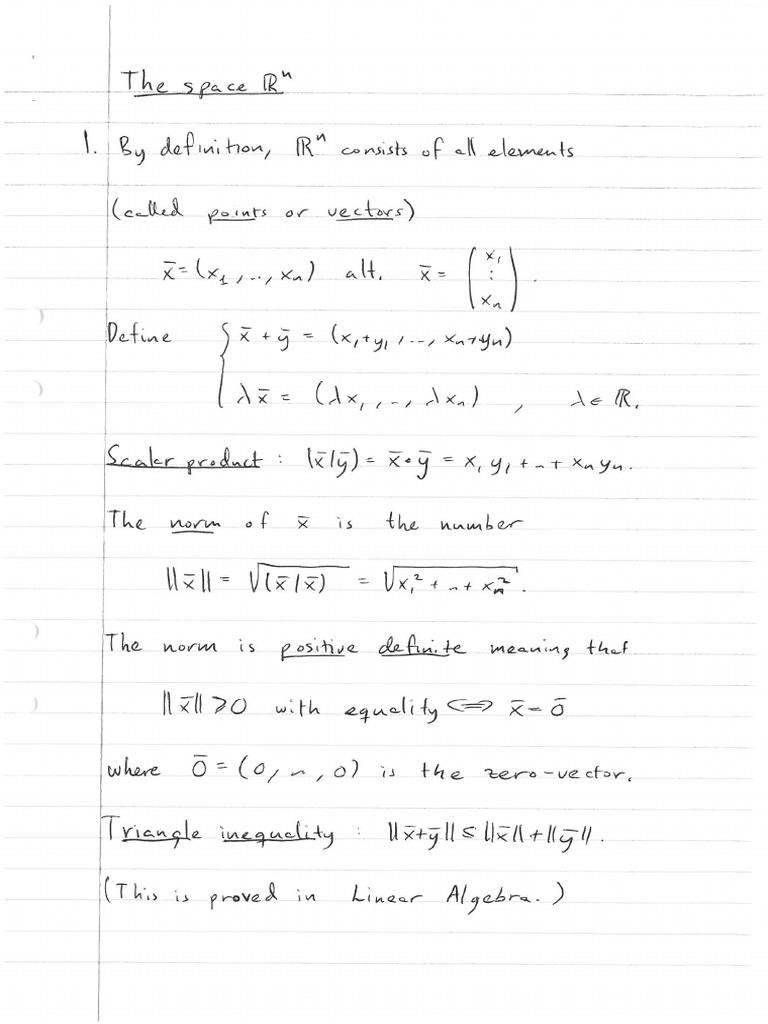 The space ℝⁿ
1. By definition, ℝⁿ consists of all elements
(called points or vectors)
x̄ = (x₁, .., xₙ) alt. x̄ = (x₁ ⋮ xₙ).
Define { x̄ + ȳ = (x₁+y₁, ..., xₙ+yₙ)
λx̄ = (λx₁, .., λxₙ) , λ ∈ ℝ.
Scalar product : (x̄|ȳ) = x̄•ȳ = x₁y₁ + ... + xₙyₙ.
The norm of x̄ is the number
||x̄|| = √(x̄|x̄) = √x₁² + ... + xₙ².
The norm is positive definite meaning that
||x̄|| ⩾ 0 with equality ⟺ x̄ = 0̄
where 0̄ = (0, ..., 0) is the zero-vector.
Triangle inequality : ||x̄+ȳ|| ≤ ||x̄|| + ||ȳ||.
(This is proved in Linear Algebra.)